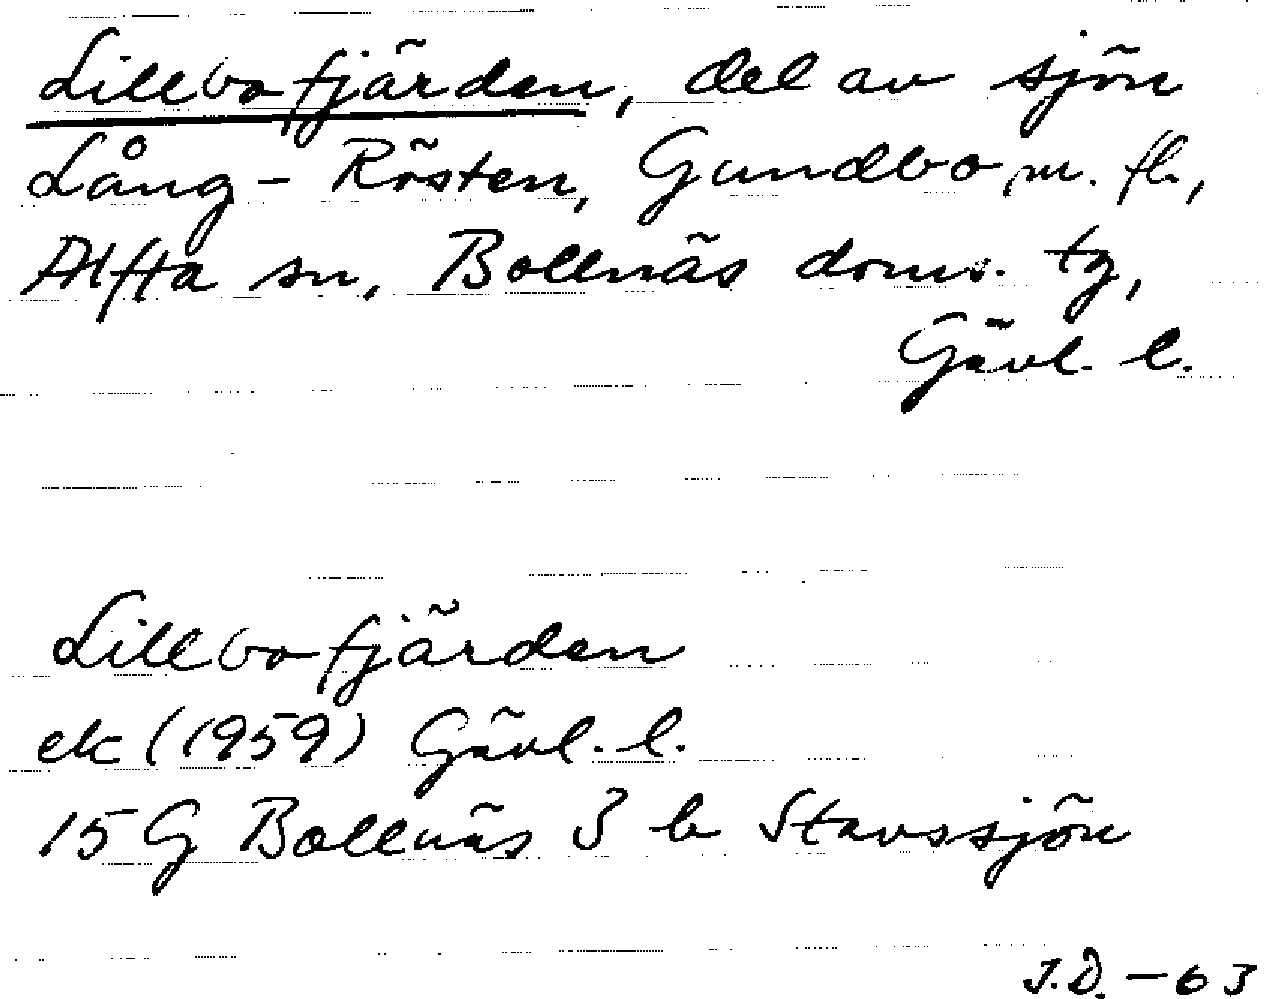 Lillbofjärden, del av sjön
Lång-Rösten, Gundbo m. fl.,
Alfta sn, Bollnäs doms. tg,
Gävl. l.
Lillbofjärden
ek (1959) Gävl. l.
15 G Bollnäs 3 b Stavssjön
J.D. - 63